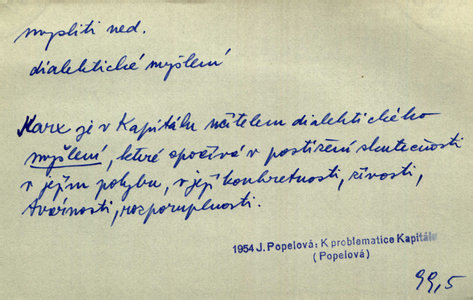 mysliti ned.
dialektické myšlení
Marx je v Kapitálu učitelem dialektického
myšlení, které spočívá v postižení skutečnosti
v jejím pohybu, v její konkretnosti, živosti,
tvárnosti, rozporuplnosti.
1954 J. Popelová: K problematice Kapitálu
(Popelová)
99,5